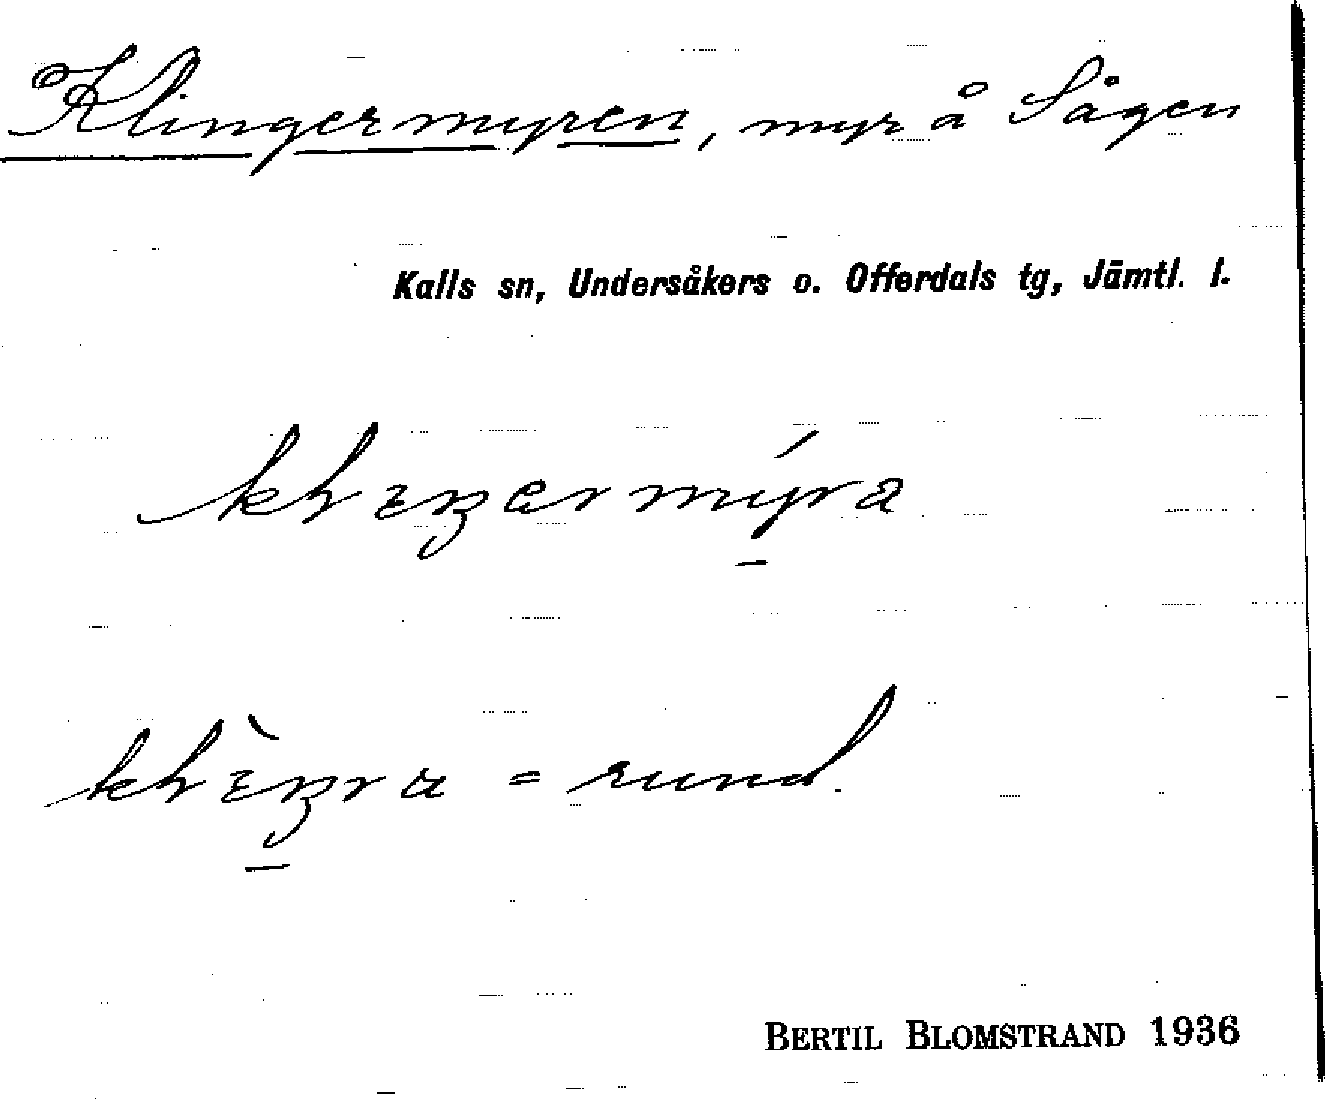 Klingermyren, myr å Sågen
Kalls sn, Undersåkers o. Offerdals tg, Jämtl. l.
= rund.
BERTIL BLOMSTRAND 1936